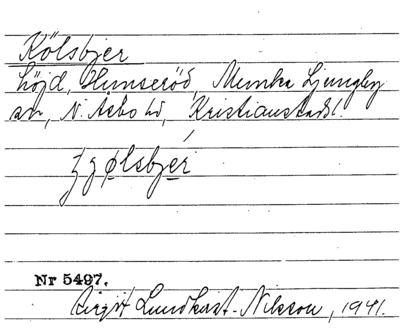 Kölsbjer
höjd, Hunseröd, Munka Ljungby
sn, N. Åsbo hd, Kristianstads l.
Nr 5497.
Birgit Lundkvist-Nilsson, 1941.